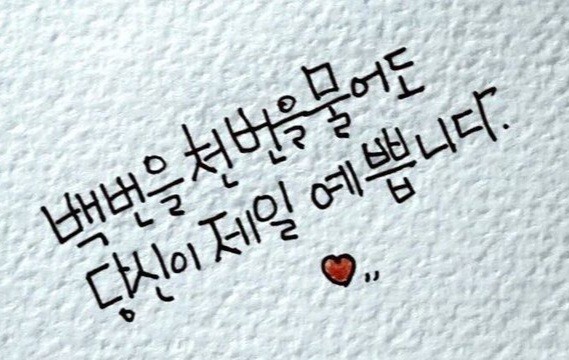 백번을 천번을 물어도
당신이 제일 예쁩니다.